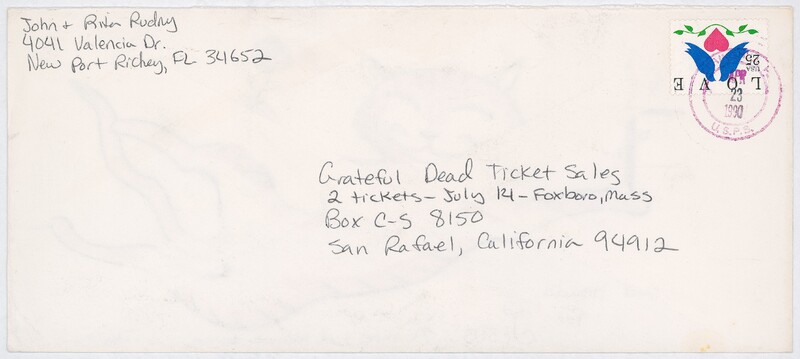 John + Rita Rudny
4041 Valencia Dr.
New Port Richey, FL 34652
25
USA
LOVE
23
1990
U.S.P.S.
Grateful Dead Ticket Sales
2 tickets - July 14 - Foxboro, Mass
Box C-S 8150
San Rafael, California 94912